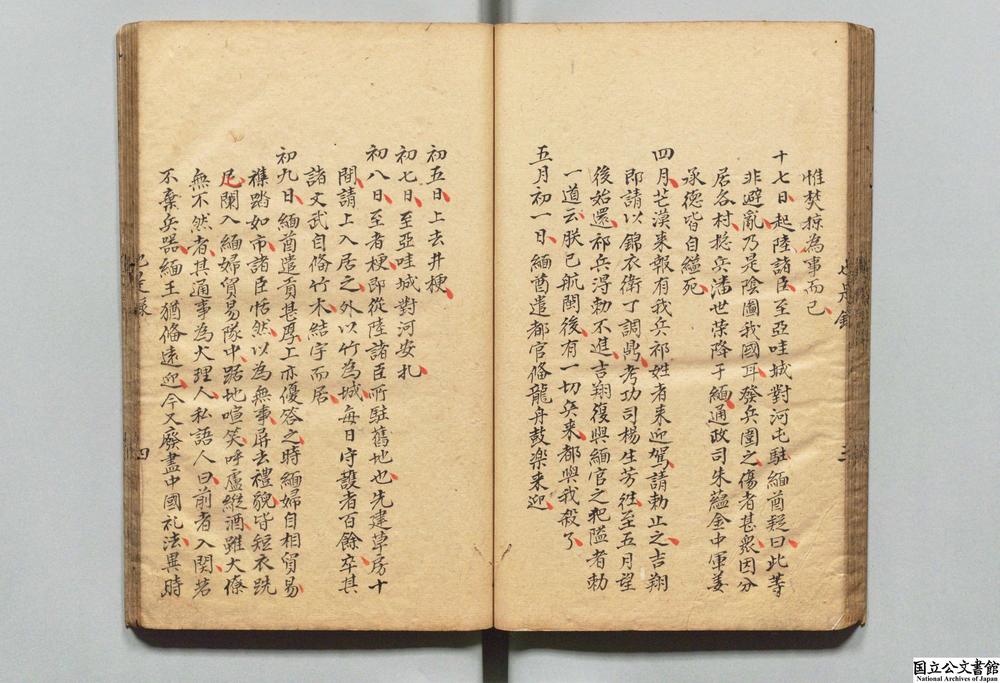 惟焚掠為事而已
十七日起陸諸臣至亞哇城對河屯駐緬酋疑曰此等
非避亂乃是陰圖我國耳發兵圍之傷者甚衆因分
居各村揔兵潘世荣降于緬通政司朱蘊金中軍姜
承德皆自縊死
四月芒漢来報有我兵祁姓者来迎駕請勅止之吉翔
即請以錦衣衛丁調鼎考功司楊生芳徃至五月望
後始還祁兵得勅不進吉翔復與緬官之把隘者勅
一道云朕已航閩後有一切兵来都與我殺了
五月初一日緬酋遣都官俻龍舟鼓楽来迎
三
初五日上去井梗
初七日至亞哇城對河安札
初八日至者梗即從陸諸臣所駐舊地也先建草房十
間請上入居之外以竹為城每日守護者百餘卒其
諸文武自俻竹木結宇而居
初九日緬酋遣貢甚厚上亦優答之時緬婦自相貿易
襍踏如市諸臣恬然以為無事屏去禮貌皆短衣跣
足闌入緬婦貿易隊中踞地喧笑呼盧縱酒雖大僚
無不然者其通事為大理人私語人曰前者入関若
不棄兵器緬王猶俻遠迎今又廢盡中國礼法異時
四
国立公文書館
National Archives of Japan